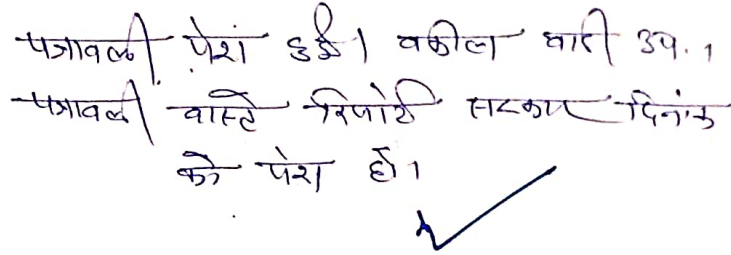 पत्रावली पेश हुई। वकील वादी उप.।
पत्रावली वास्ते रिपोर्ट सरकार दिनांक
को पेश हो।